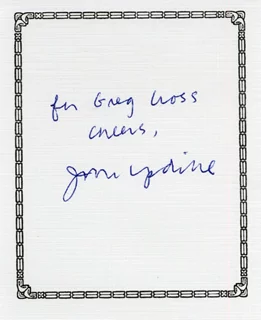 for Greg Cross
cheers,
John Updike